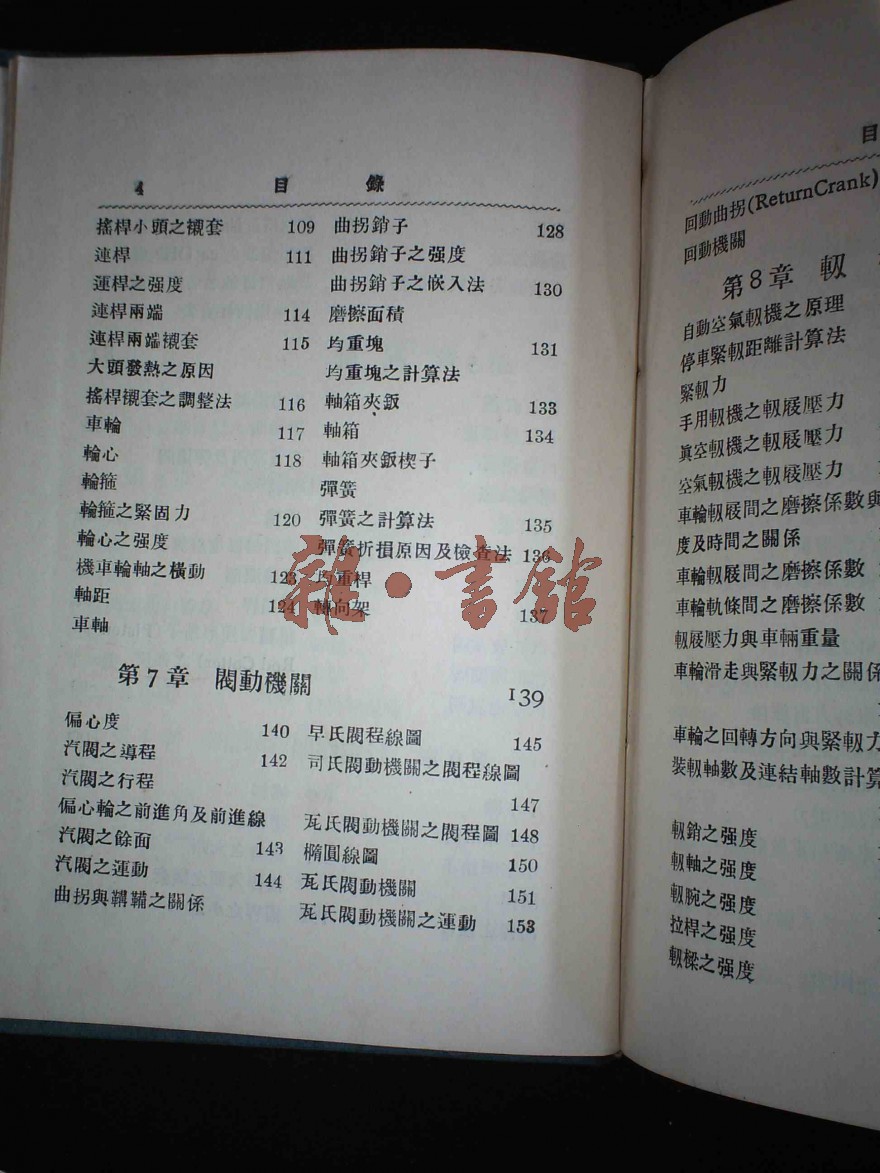 4 目錄
搖桿小頭之襯套 109
連桿 111
運桿之强度
連桿兩端 114
連桿兩端襯套 115
大頭發熱之原因
搖桿襯套之調整法 116
車輪 117
輪心 118
輪箍
輪箍之緊固力 120
輪心之强度
機車輪軸之橫動 123
軸距 124
車軸
曲拐銷子 128
曲拐銷子之强度
曲拐銷子之嵌入法 130
磨擦面積
均重塊 131
均重塊之計算法
軸箱夾鈑 133
軸箱 134
軸箱夾鈑楔子
彈簧
彈簧之計算法 135
彈簧折損原因及檢查法 136
均重桿
轉向架 137
第7章 閥動機關 139
偏心度 140
汽閥之導程 142
汽閥之行程
偏心輪之前進角及前進線
汽閥之餘面 143
汽閥之運動 144
曲拐與鞲鞴之關係
早氏閥程線圖 145
司氏閥動機關之閥程線圖
147
瓦氏閥動機關之閥程圖 148
橢圓線圖 150
瓦氏閥動機關 151
瓦氏閥動機關之運動 153
目
回動曲拐(Return Crank)
回動機關
第8章 軔
自動空氣軔機之原理
停車緊軔距離計算法
緊軔力
手用軔機之軔屐壓力
眞空軔機之軔屐壓力
空氣軔機之軔屐壓力
車輪軔屐間之磨擦係數與
度及時間之關係
車輪軔屐間之磨擦係數
車輪軌條間之磨擦係數
軔屐壓力與車輛重量
車輪滑走與緊軔力之關係
車輪之回轉方向與緊軔力
裝軔軸數及連結軸數計算
軔銷之强度
軔軸之强度
軔腕之强度
拉桿之强度
軔樑之强度
雜·書館